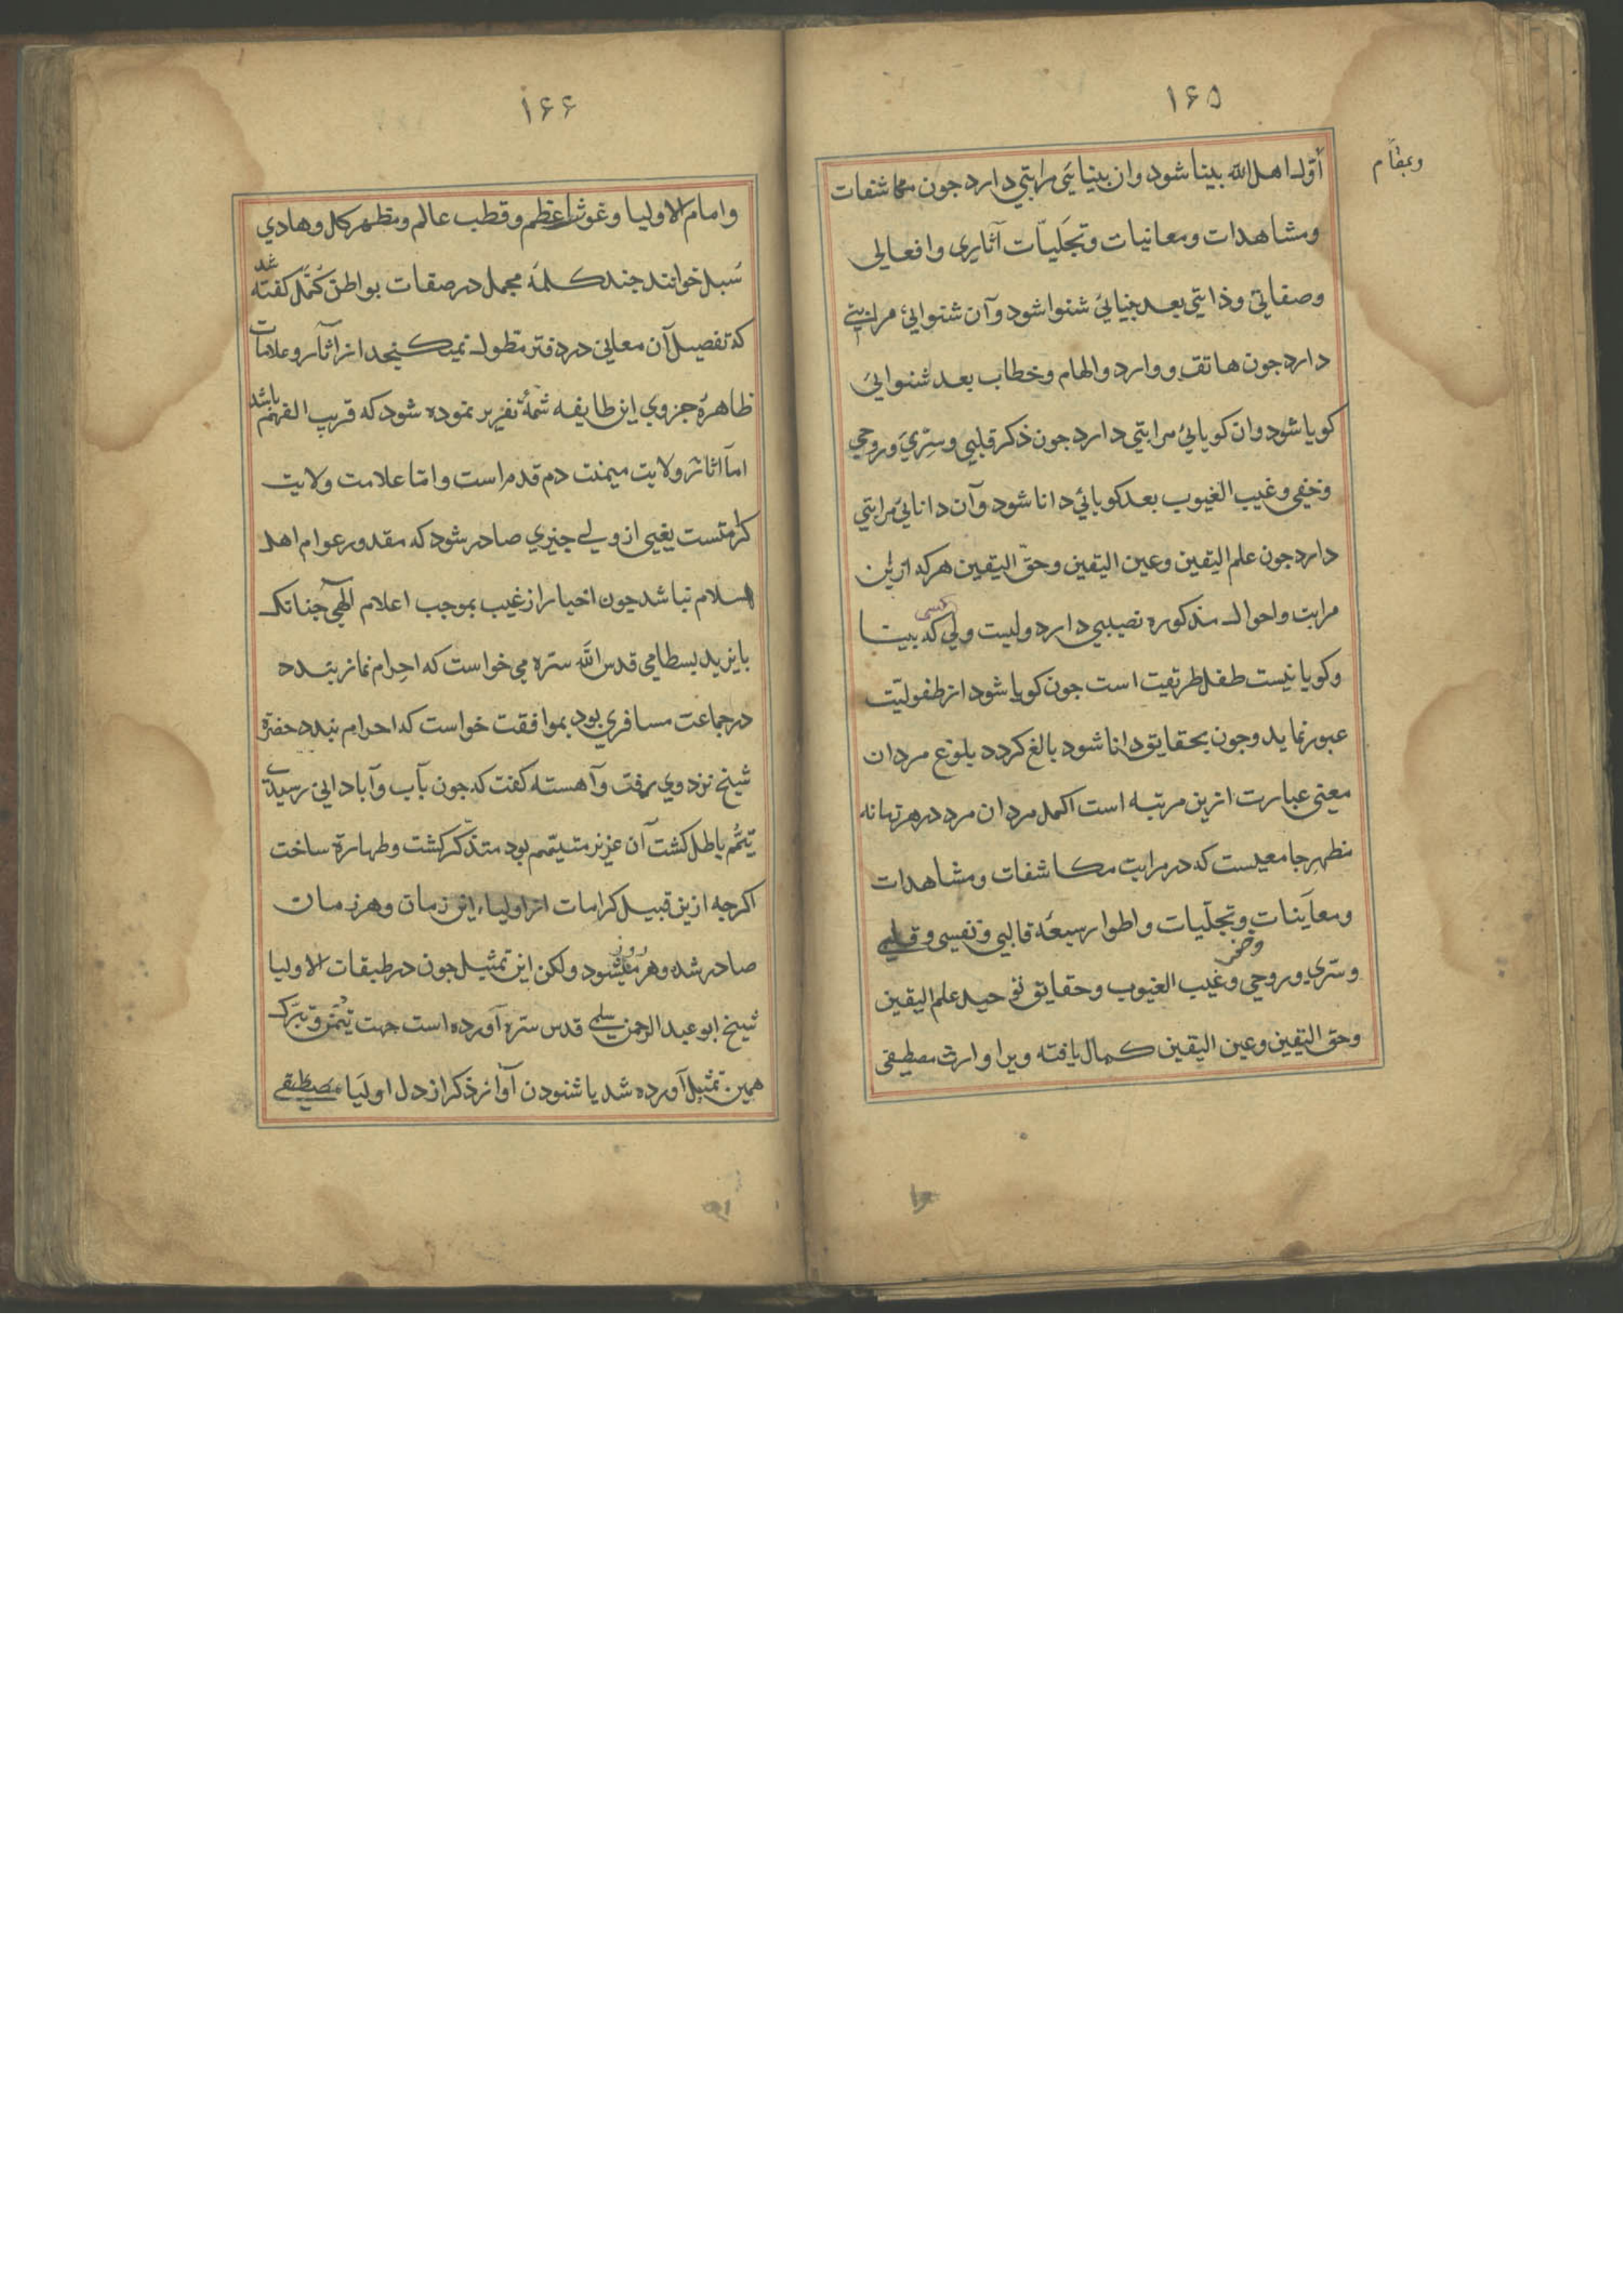 ۱۶۵
وبمقام
اوّل اهل الله بینا شود وان بینایی مرابتی دارد جون مکاشفات
ومشاهدات ومعانیات وتجلیّات آثاری وافعالی
وصفاتی وذاتی بعد بینایی شنوا شود وآن شنوایی مرابتی
دارد جون هاتف ووارد والهام وخطاب بعد شنوایی
کویا شود وان کویایی مرابتی دارد جون ذکر قلبی وسرّی وروحی
وخفی وغیب الغیوب بعد کویایی دانا شود وآن دانایی مرابتی
دارد جون علم الیقین وعین الیقین وحقّ الیقین هرکه ازین
مرابت واحوال مذکوره نصیبی دارد ولیست ولی کسی که بینا
وکویا نیست طفل طریقت است جون کویا شود از طفولیّت
عبور نماید وجون بحقایق دانا شود بالغ کردد بلوغ مردان
معنی عبارت ازین مرتبه است اکمل مردان مرد درهر زمانه
مظهر جامعیست که در مرابت مکاشفات ومشاهدات
ومعاینات وتجلّیات واطوار سبعه قالبی ونفسی وقلبی
وسرّی وروحی وخفی وغیب الغیوب وحقایق توحید علم الیقین
وحق الیقین وعین الیقین کمال یافته ویرا وارث مصطفی
۱۶۶
وامام الاولیا وغوث اعظم وقطب عالم ومظهر کل وهادی
سُبل خوانند جند کلمهٔ مجمل در صفات بواطن کُمّل کفته شد
که تفصیل آن معانی در دفتر مطول نمیکنجد از آثار وعلامات
ظاهرهٔ جزوی این طایفه شمهٔ تقریر نموده شود که قریب الفهم باشد
امآ اثاثر ولایت میمنت دم قدم راست واما علامت ولایت
کرامتست یعنی از ولی جیزی صادر شود که مقدور عوام اهل
اسلام نباشد جون اخبار از غیب بموجب اعلام الهی جنانک
بایزید بسطامی قدس الله سره می خواست که احرام نماز بندد
در جماعت مسافری بود بموافقت خواست که احرام بندد حضرة
شیخ نزد وی رفت وآهسته کفت که جون بآب وآبادانی رسیدی
تیمّم باطل کشت آن عزیز متیمم بود متذکّر کشت وطهارة ساخت
اکرجه ازین قبیل کرامات از اولیاء این زمان وهر زمان
صادر شده وهر روز میشود ولکن این تمثیل جون در طبقات الاولیا
شیخ ابو عبد الرحمن سلمی قدس سره آورده است جهت تیمّن وتبرّک
همین تمثیل آورده شد یا شنودن آواز ذکر از دل اولیا مصطفی